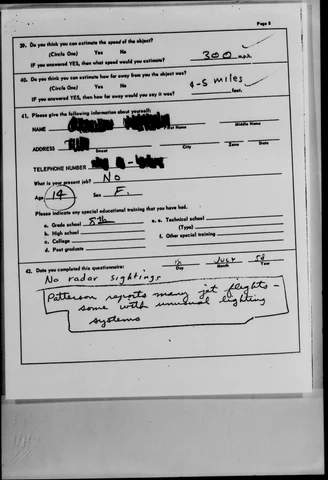 Page 8
39. Do you think you can estimate the speed of the object?
(Circle One) Yes No
IF you answered YES, then what speed would you estimate? 300 m.p.h.
40. Do you think you can estimate how far away from you the object was?
(Circle One) Yes No
IF you answered YES, then how far away would you say it was? 4-5 miles feet.
41. Please give the following information about yourself:
NAME
First Name Middle Name
ADDRESS
Street City Zone State
TELEPHONE NUMBER
What is your present job? No
Age 14 Sex F.
Please indicate any special educational training that you have had.
a. Grade school 8th e. Technical school
b. High school (Type)
c. College f. Other special training
d. Post graduate
42. Date you completed this questionnaire: July 58
Day Month Year
No radar sightings
Patterson reports many jet flights -
some with unusual lighting
systems